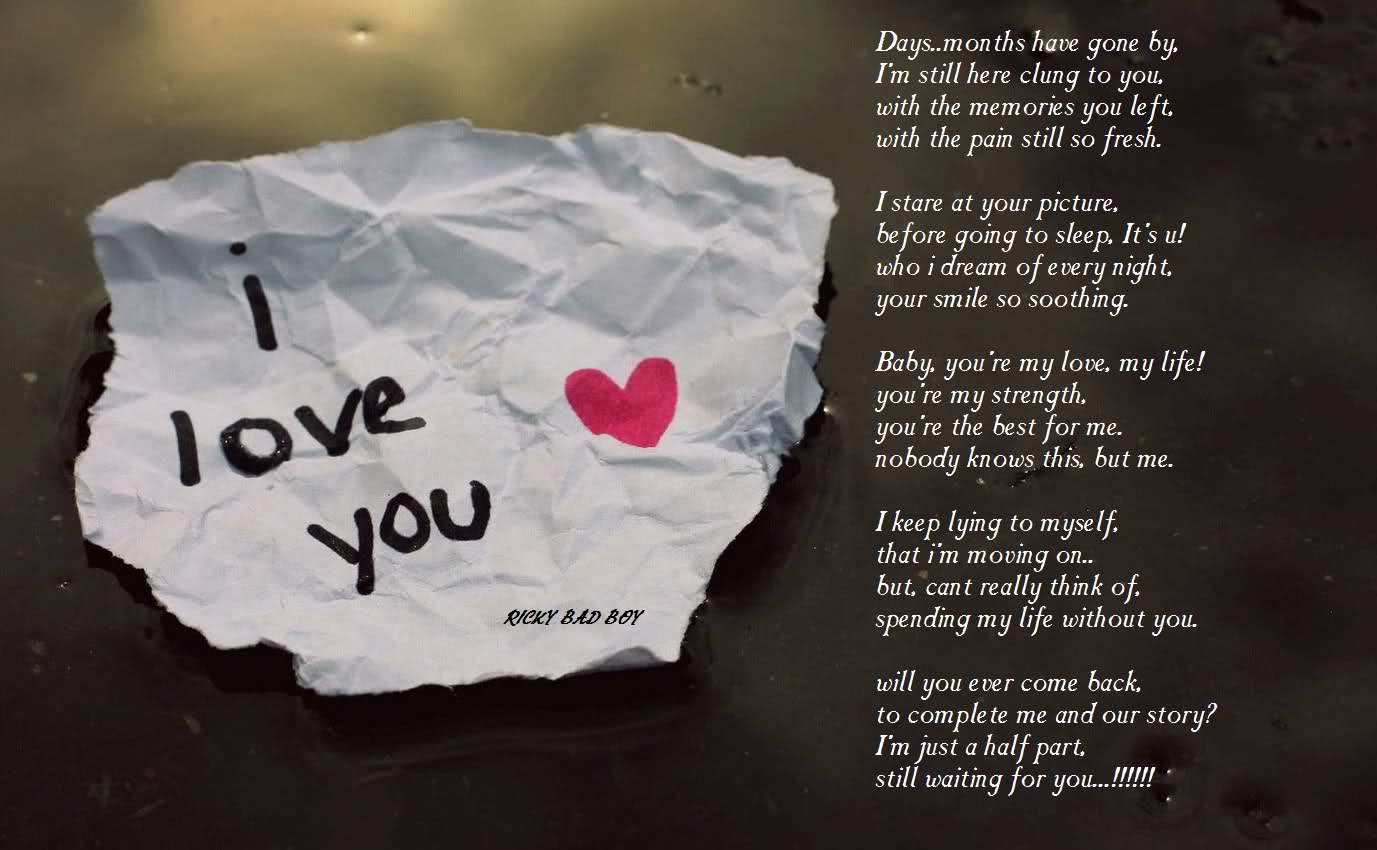 i
love
you
RICKY BAD BOY
Days..months have gone by,
I'm still here clung to you,
with the memories you left,
with the pain still so fresh.
I stare at your picture,
before going to sleep, It's u!
who i dream of every night,
your smile so soothing.
Baby, you're my love, my life!
you're my strength,
you're the best for me.
nobody knows this, but me.
I keep lying to myself,
that i'm moving on..
but, cant really think of,
spending my life without you.
will you ever come back,
to complete me and our story?
I'm just a half part,
still waiting for you...!!!!!!